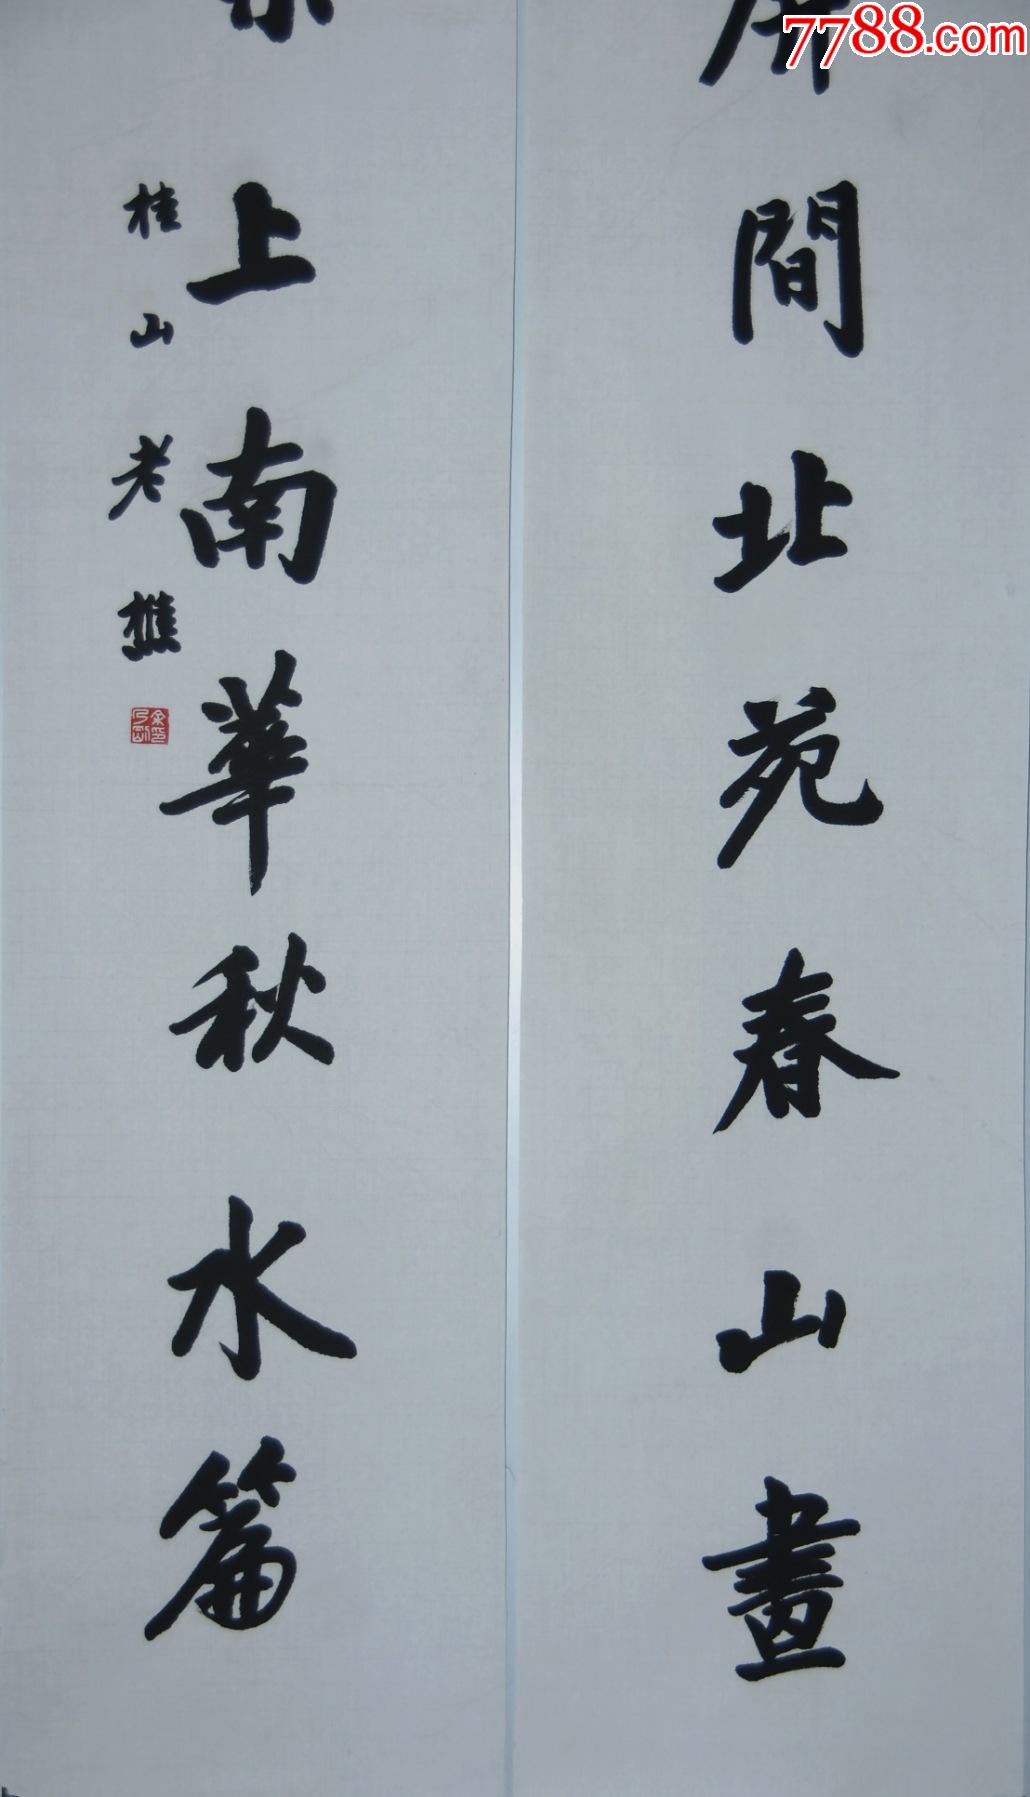 7788.com
屏間北苑春山畫
上南華秋水篇
桂山老樵